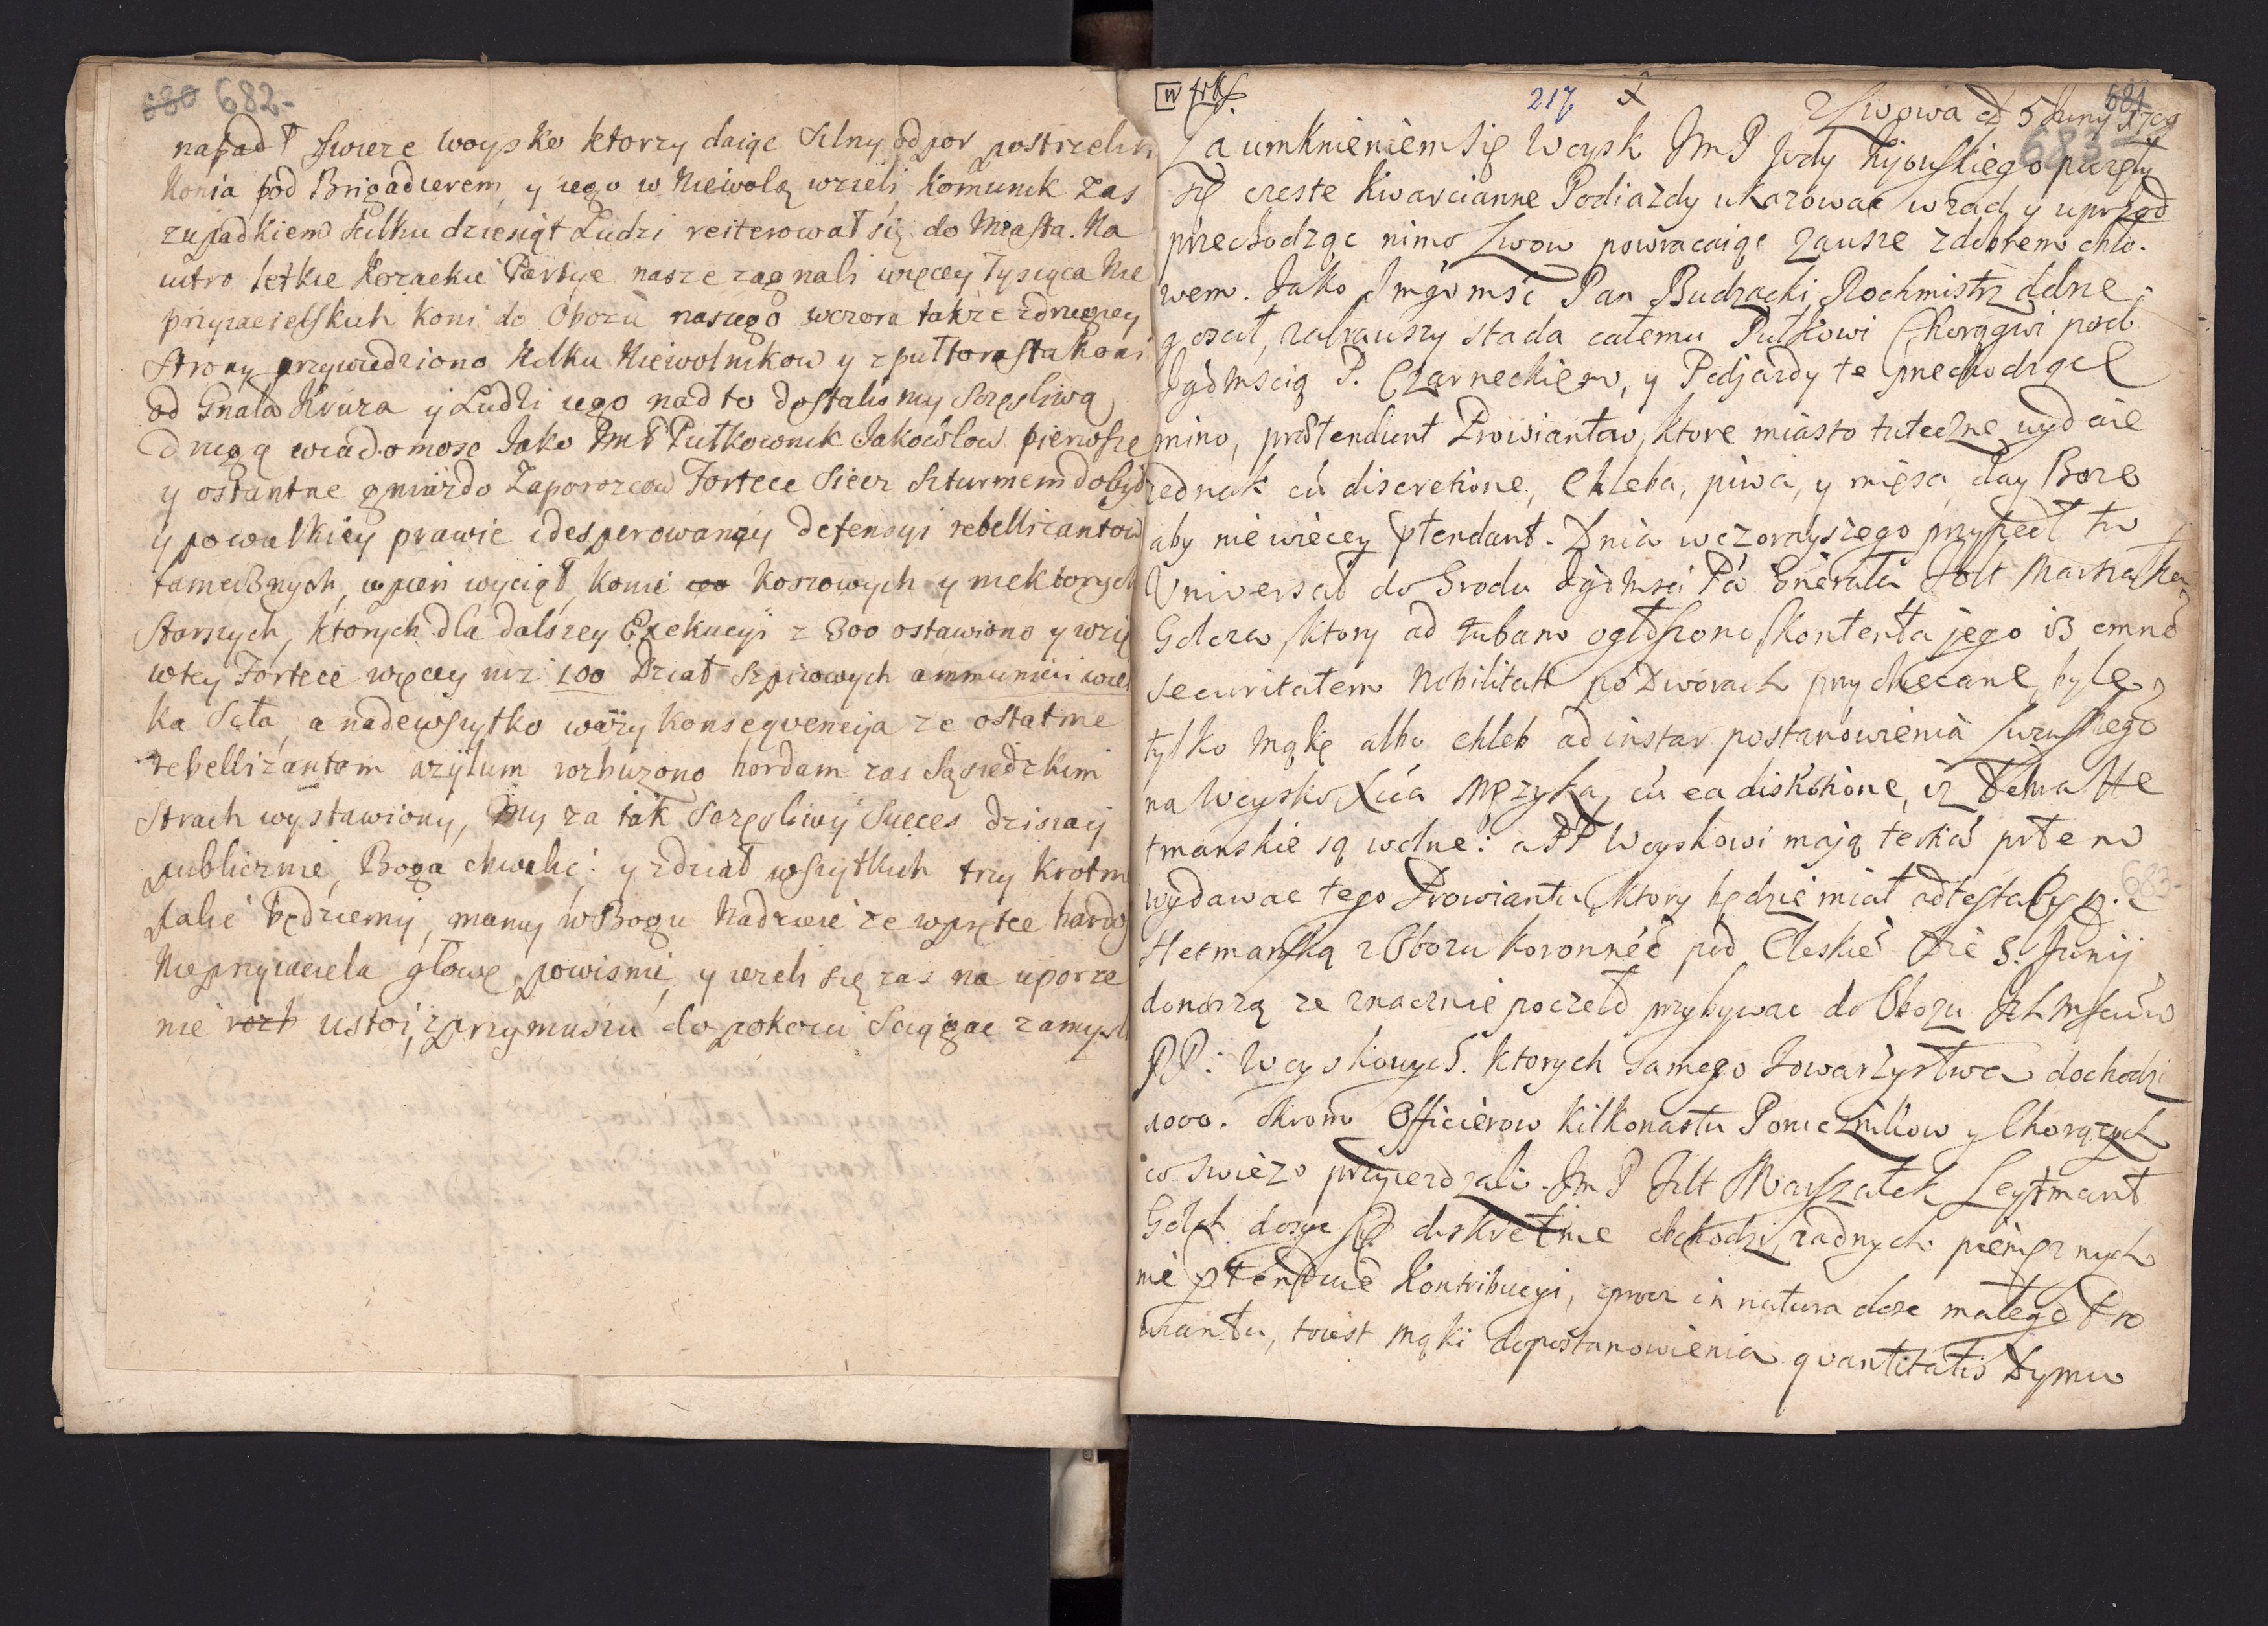 680 682-
napadł swieze woysko ktorzy daiąc silny odpor postrzelili
Konia pod Brigadierem, y iego w Niewolą wzieli, komunik zas
zupadkiem kilku dziesiąt Ludzi reiterował się do Miasta. Na
iutro letkie Kozackie Partyje nasze zagnali więcey Tysiąca Nie
przyiacielskich koni do Obozu naszego wczora także zdrugiey
Strony przywiedziono kilku Niewolnikow y zpułtorasta koni
od Gnała Kruza y Ludzi iego nad to dostalismy Szczęsliwą
drugą wiadomosc Jako JmP Pułkownik Jakowlow pierwsze
y ostantne gniazdo Zaporozcow Fortece Siecz szturmem dobył
y po wielkiey prawie i desperowaney defensyi rebellizantow
tamecznych, w pień wyciął, konie Koszowych y niektorych
Starszych, ktorych dla dalszey Exekucyi z 300 ostawiono y wzię
w tey Fortece więcey niz 100 Dział Spizowych ammunicii wiel
ka Siła, a nadewszytko wazy konseqvencyja ze ostatnie
rebellizantom azylum rozburzono hordam zas Sąsiedzkim
Strach wystawiony, my za tak Szczęsliwy Succes dzisiay
publicznie, Boga chwalić: y zdział wszytkich trzy krotnie
palić będziemy, mamy w Bogu Nadzieie ze wprętce hardą
Nieprzyiaciela głowę powismi, y iezeli się zas na uporze
nie rozb ustoi, zprzymuszu do pokoiu Sciągac zamysl
w trkf.
217
681
683
Z Lwowa d 5 Juny 1709
Za umknieniem się Woysk JmP Wdy Kijowskiego poczęły
się czeste Kwarcianne Podiazdy ukazowac wzad y uprzod
przechodząc nimo Lwow powracaiąc zawsze zdobrem obło-
wem. Jako Jmgomsc Pan Budzacki Rochmistrz dolne
goscił, zabrawszy stada całemu Pułkowi Chorągwi pod
Jgomscią P. Czarneckiem, y Podjazdy te przechodząc
mimo, praetendunt Prowiantow, ktore miasto tuteczne wydaie
iednak cu discretione, Chleba, piwa, y mięsa, day Boze
aby nie wiecey ptendant. Dnia wczorayszego przyszedł tu
Universał do Grodu Jgomsci Pa Gnerała Felt Marszałka
Golcza, ktory ad tubam ogłoszono, kontenta jego is omnē
securitatem Nobilitati po Dworach przyobiecane, byle
tylko mąkę albo chleb ad instar postanowienia
na Woysko Xcia Mężyka, cu ea diskretione, iz Dobra He
tmanskie są wolne: a PP Woyskowi mają
wydawac tego Prowiantu, ktory będzie miał adtestacyą
Hetmanską z Obozu koronnēo pod Oleskiē Die 3. Junij
donoszą ze znacznie poczęło przybywac do Obozu Ich Mściow
PP: Woyskowych. ktorych samego Towarzystwa dochodzi
1000. okrom Officierow kilkonastu Porucznikow y Chorązych
co swiezo przyiezdzali. JmP Felt Marszałek Leytmant
Golch dosyc się diskretnie obchodzi, zadnych pienięznych
nie ptenduie Kontribucyi, oprocz in natura dosc małego Pro
wiantu, toiest mąki do postanowienia qvantitatis Dymu
683-